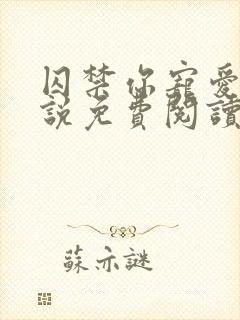 囚禁你寵愛
説免費閱讀
蘇亦謎